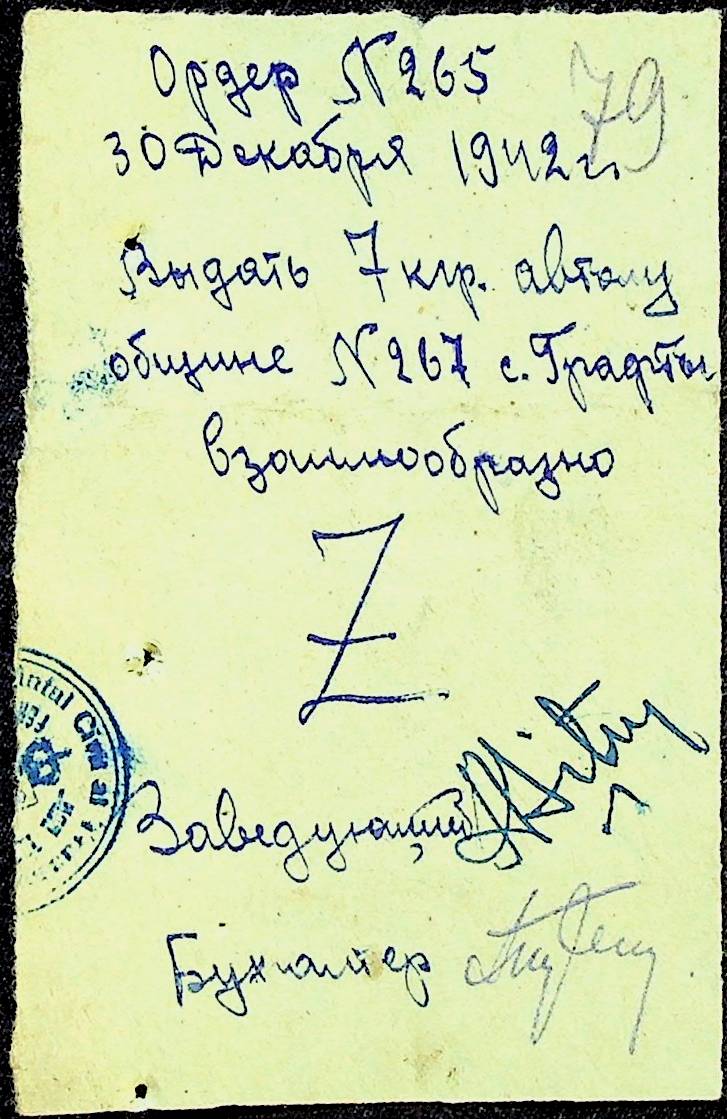 79
Ордер N 265
30 Декабря 1942 г.
Выдать 7 кгр. автолу
общине N 267 с.
взаимообразно
Z
Civil
Заведующий
Бухгалтер